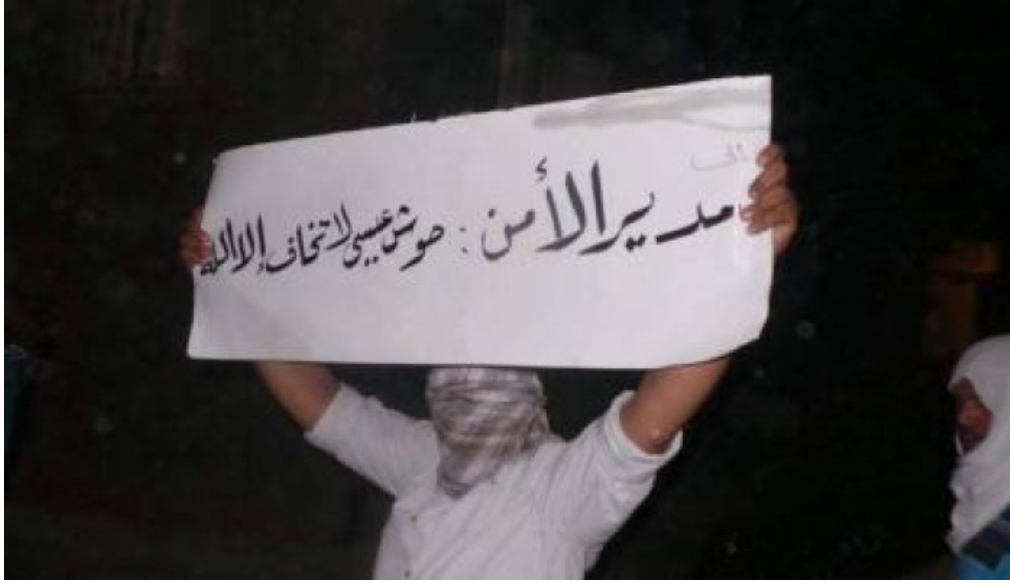 إلى
مدير الأمن : حوش عيسى لا تخاف إلا الله